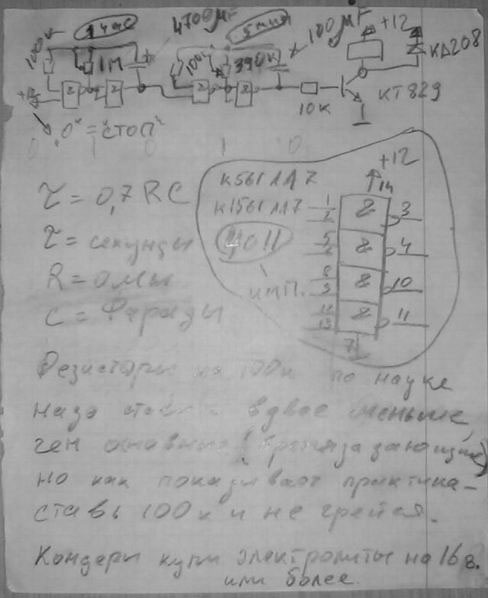 1 час 4700μF 5 мин 100μF +12
100к 1М 100к 390к КД208
2 2 2 2 10к КТ829
"0"="СТОП"
0 1 0 1 0 1
К561ЛА7 +12
τ = 0,7 RC К1561ЛА7 1 2 & 3 14
τ = секунды 4011 5 6 & 4
R = Омы имп. 8 9 & 10
C = Фарады & 11
7
Резисторы на 100к по науке
надо вдвое меньше,
чем основные (времязадающие)
но как показывает практика –
ставь 100к и не грейся.
Кондеры купи электролиты на 16в.
или более.